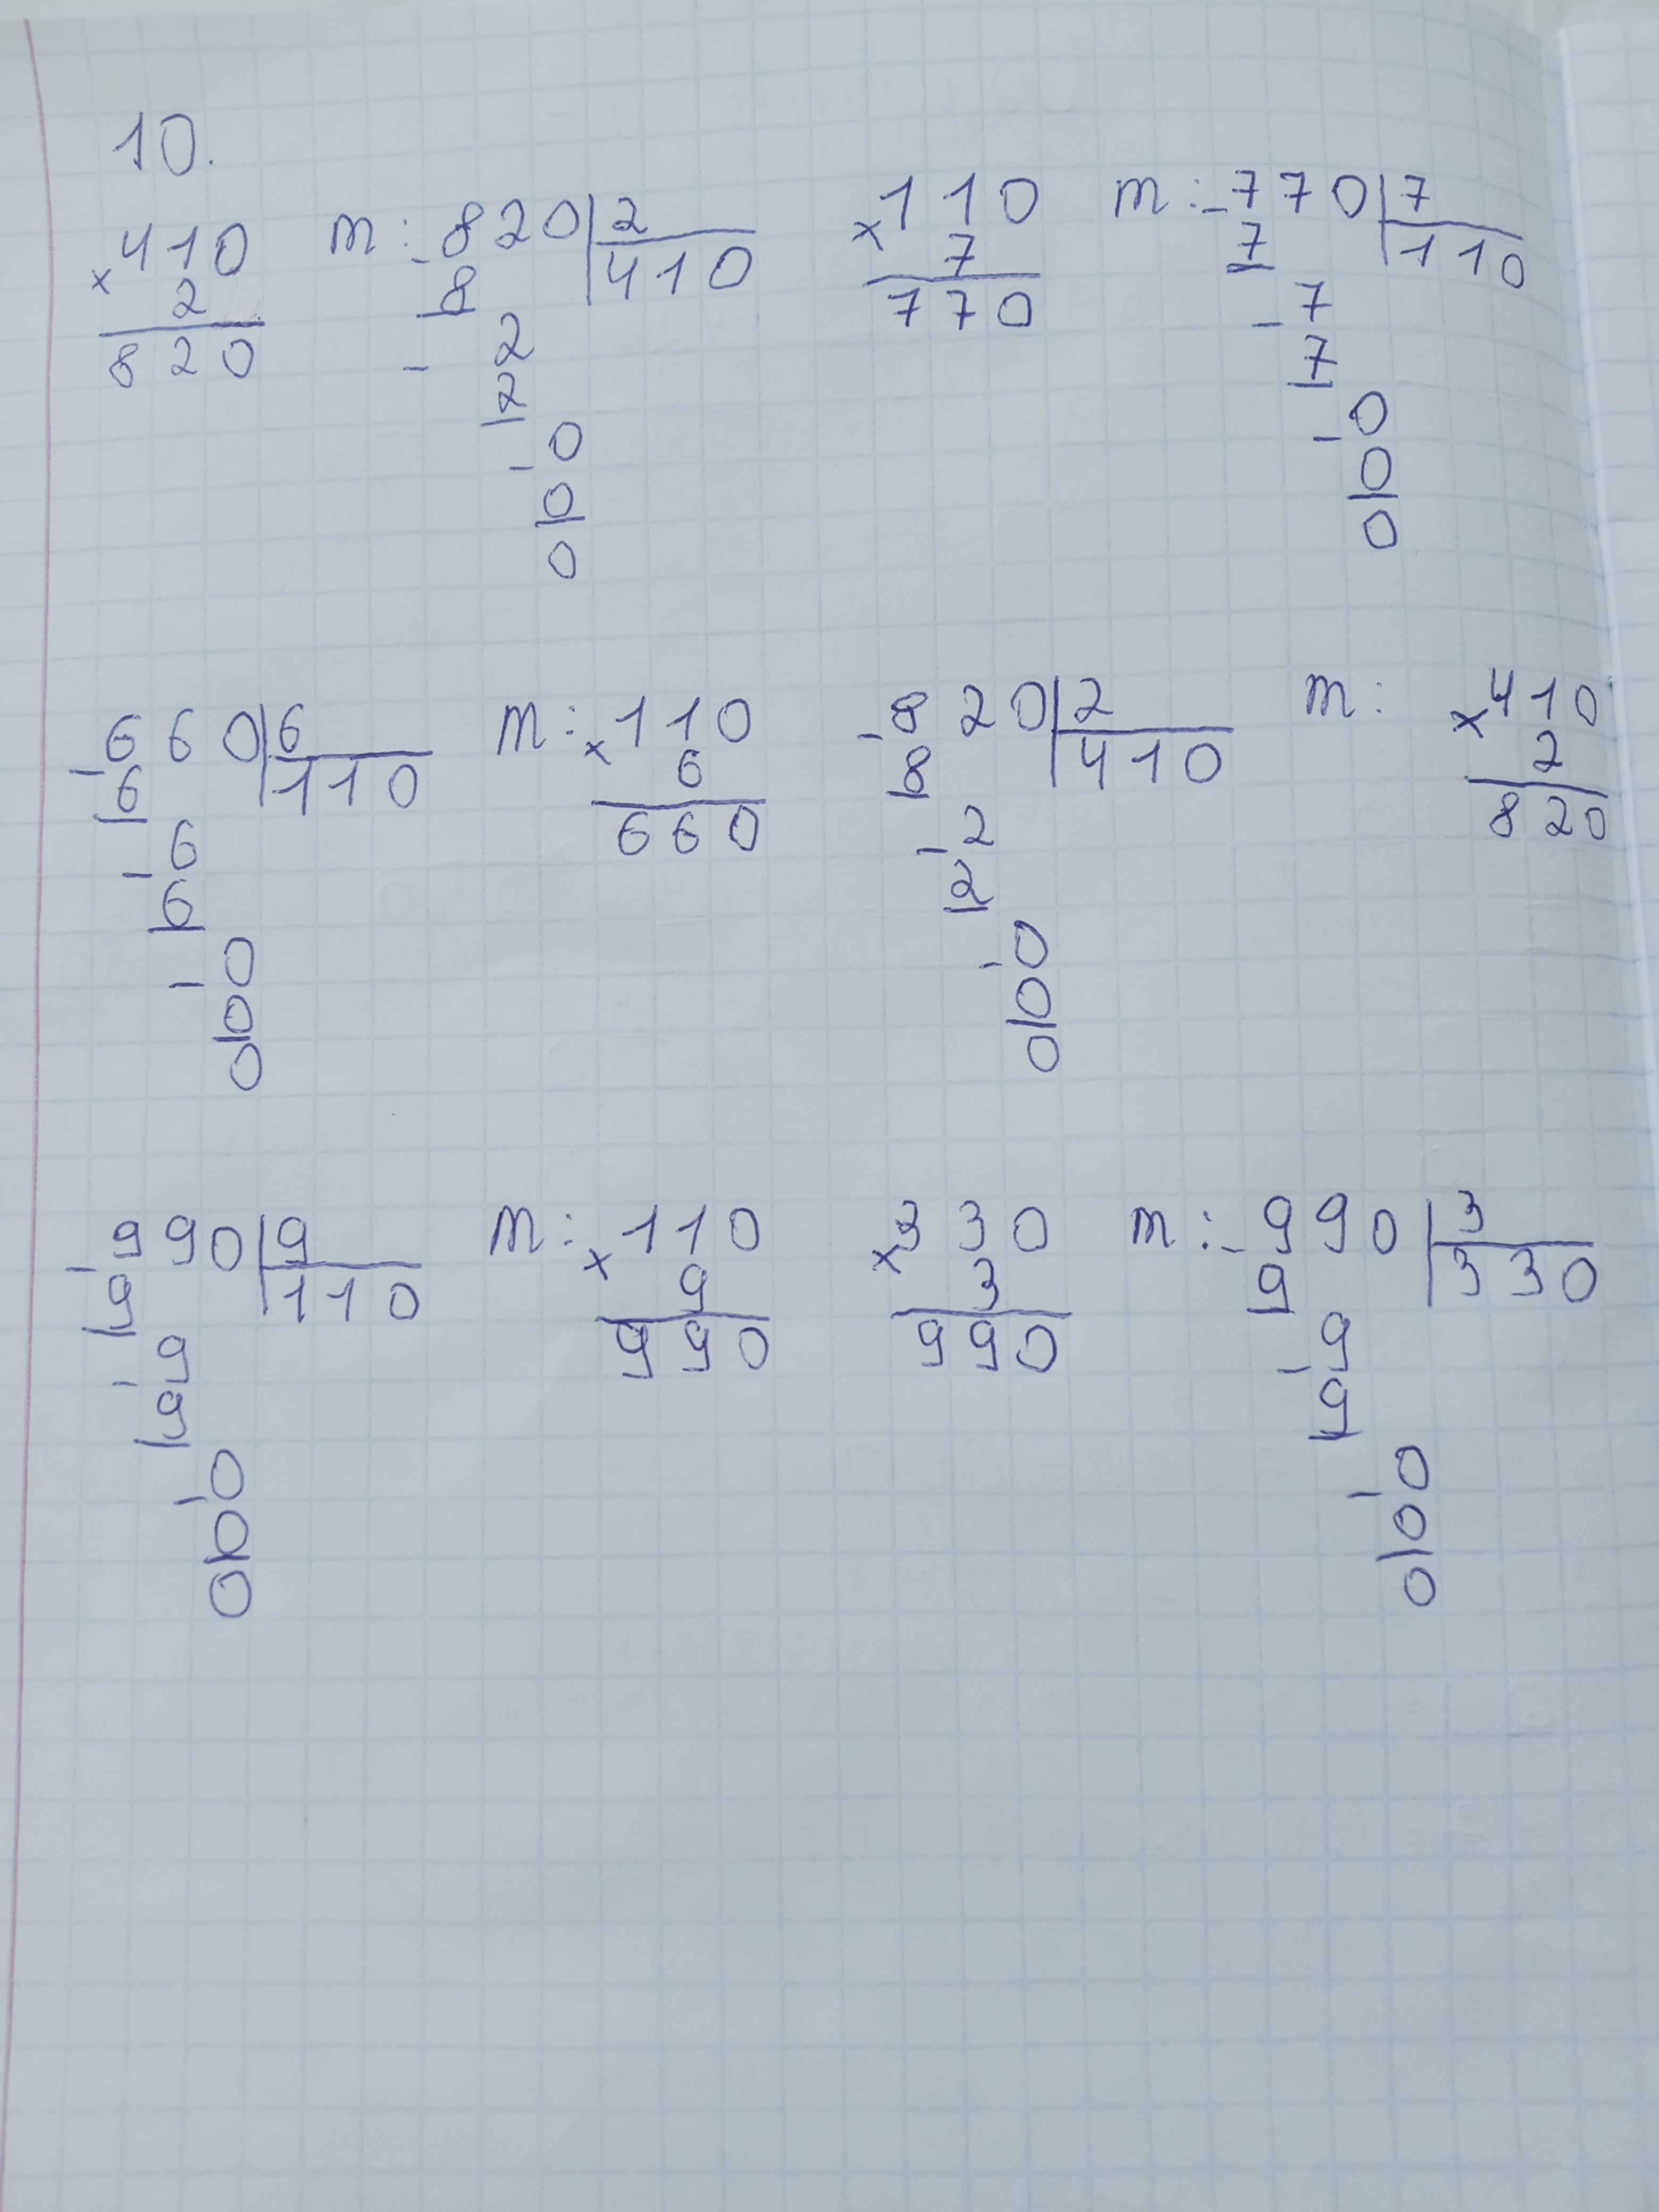 10.
×410 m: -820|2 ×110 m: -770|7
2 8 410 7 7 110
820 - 2 770 -7
2 7
-0 -0
0 0
0 0
-660|6 m: ×110 -820|2 m: ×410
6 110 6 8 410 2
-6 660 -2 820
6 2
-0 -0
0 0
0 0
-990|9 m: ×110 ×330 m: -990|3
9 110 9 3 9 330
-9 990 990 -9
9 9
-0 -0
0 0
0 0